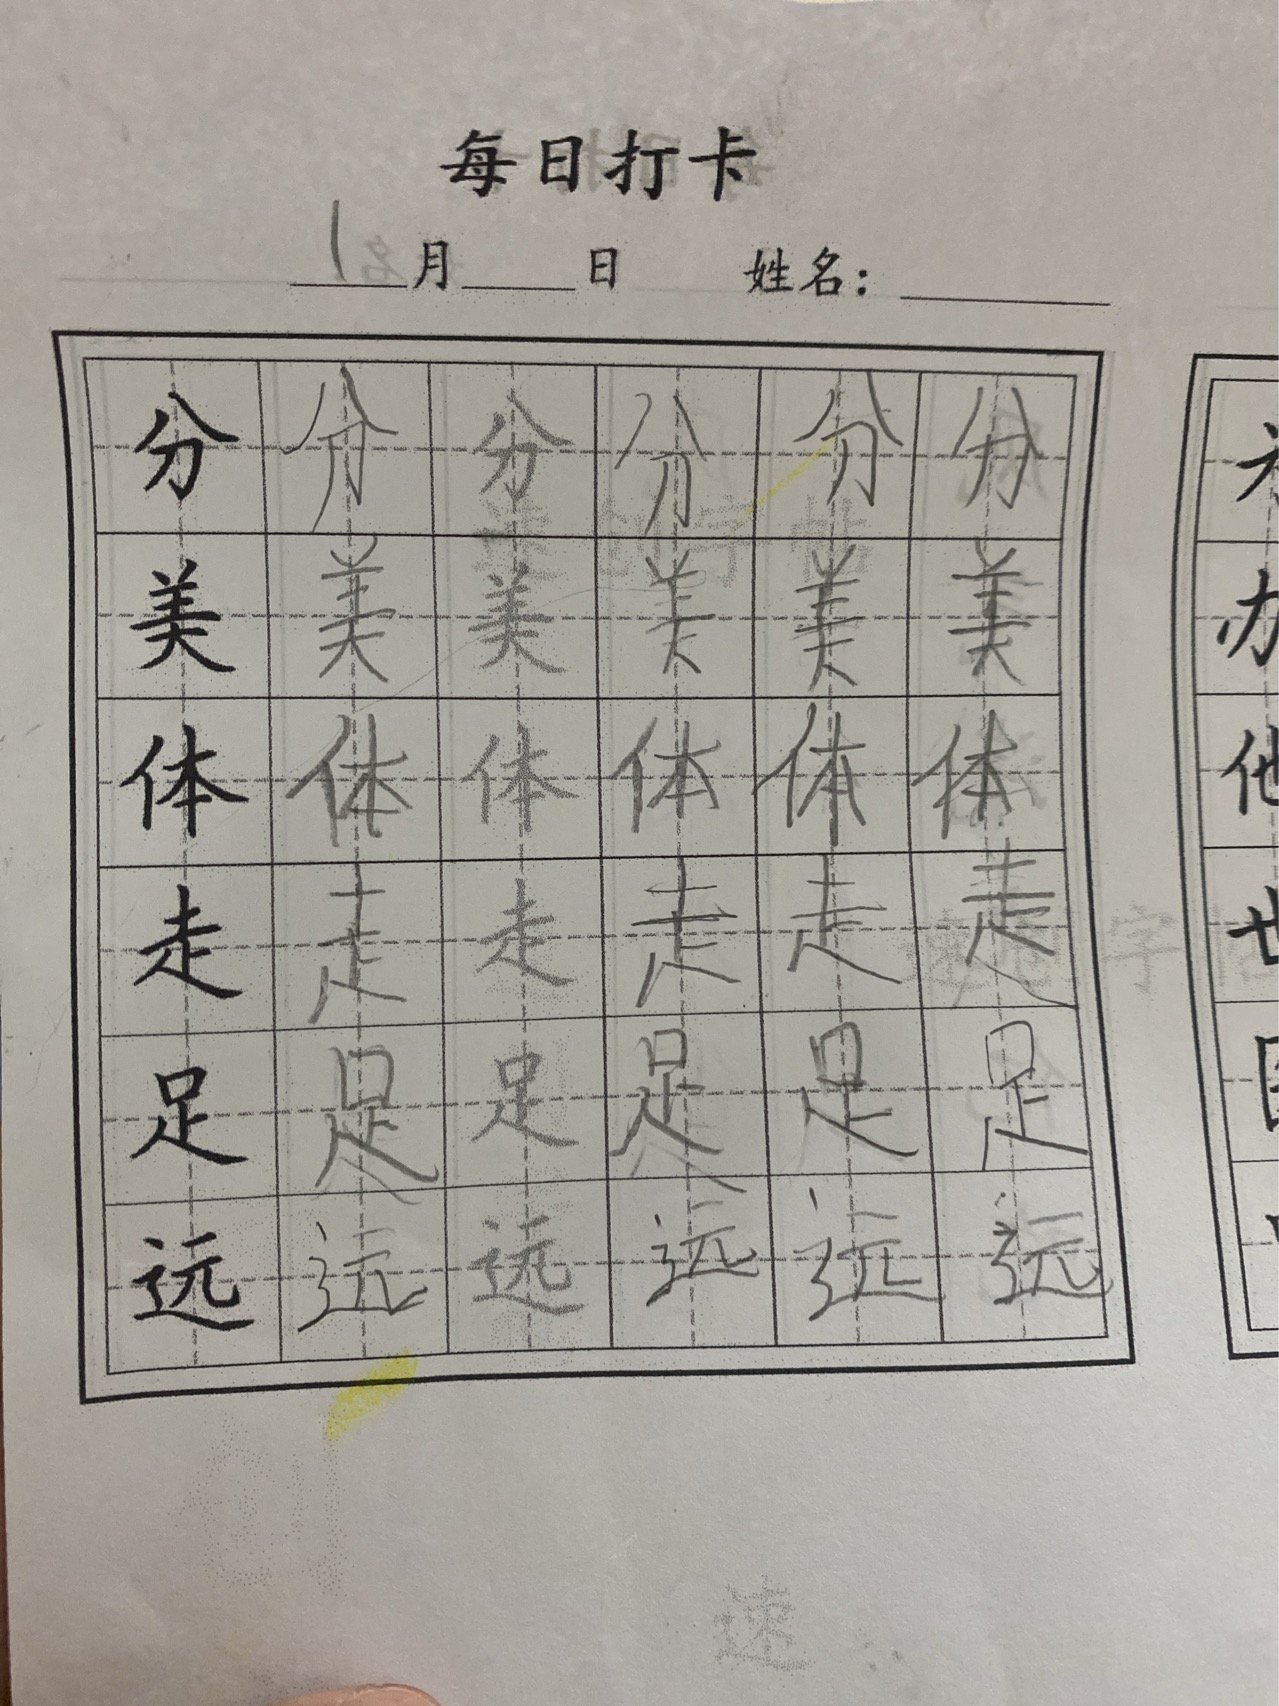 每日打卡
1月 日 姓名：
分分分分分分
美美美美美美
体体体体体体
走走走走走走
足足足足足足
远远远远远远
办
他
也
速